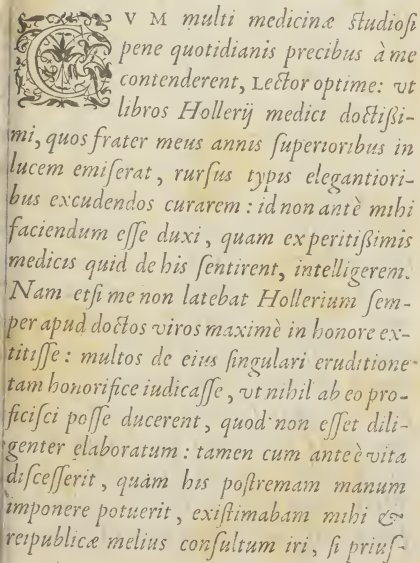 CVM multi medicinæ ſtudioſi
pene quotidianis precibus à me
contenderent, Lector optime: vt
libros Hollerij medici doctißi-
mi, quos frater meus annis ſuperioribus in
lucem emiſerat, rurſus typis elegantiori-
bus excudendos curarem: id non antè mihi
faciendum eſſe duxi, quam ex peritißimis
medicis quid de his ſentirent, intelligerem.
Nam etſi me non latebat Hollerium ſem-
per apud doctos viros maximè in honore ex-
titiſſe: multos de eius ſingulari eruditione
tam honorifice iudicaſſe, vt nihil ab eo pro-
ficiſci poſſe ducerent, quod non eſſet dili-
genter elaboratum: tamen cum antè è vita
diſceſſerit, quàm his poſtremam manum
imponere potuerit, exiſtimabam mihi &
reipublicæ melius conſultum iri, ſi priuſ-